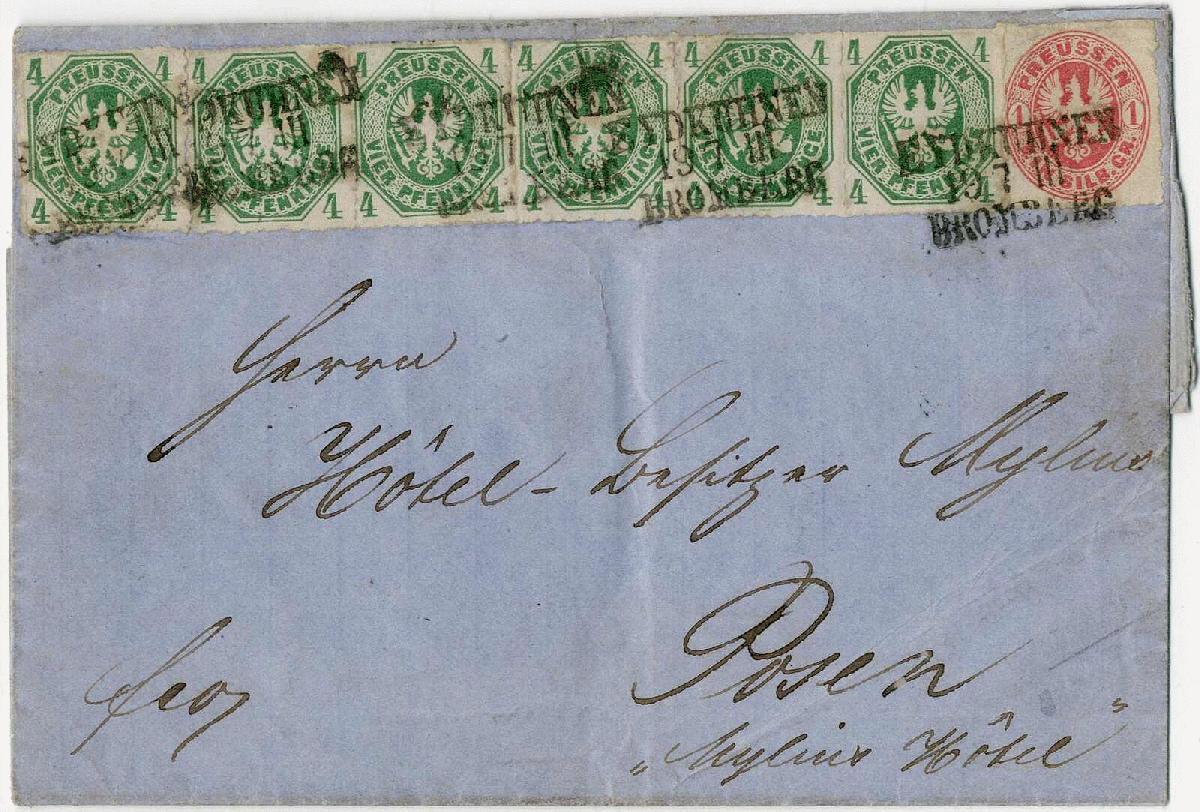 4 4 4 4 4 4 4 4 4 4 4 4
PREUSSEN PREUSSEN PREUSSEN PREUSSEN PREUSSEN PREUSSEN PREUSSEN
1 1
VIER PFENNINGE VIER PFENNINGE VIER PFENNINGE VIER PFENNINGE VIER PFENNINGE VIER PFENNINGE SILB. GR.
4 4 4 4 4 4 4 4 4 4 4 4
EYDKUHNEN
19 7 III
BROMBERG
EYDKUHNEN
19 7 III
BROMBERG
Herrn
Hôtel-Besitzer Mylius
Posen
„Mylius Hôtel"
fco